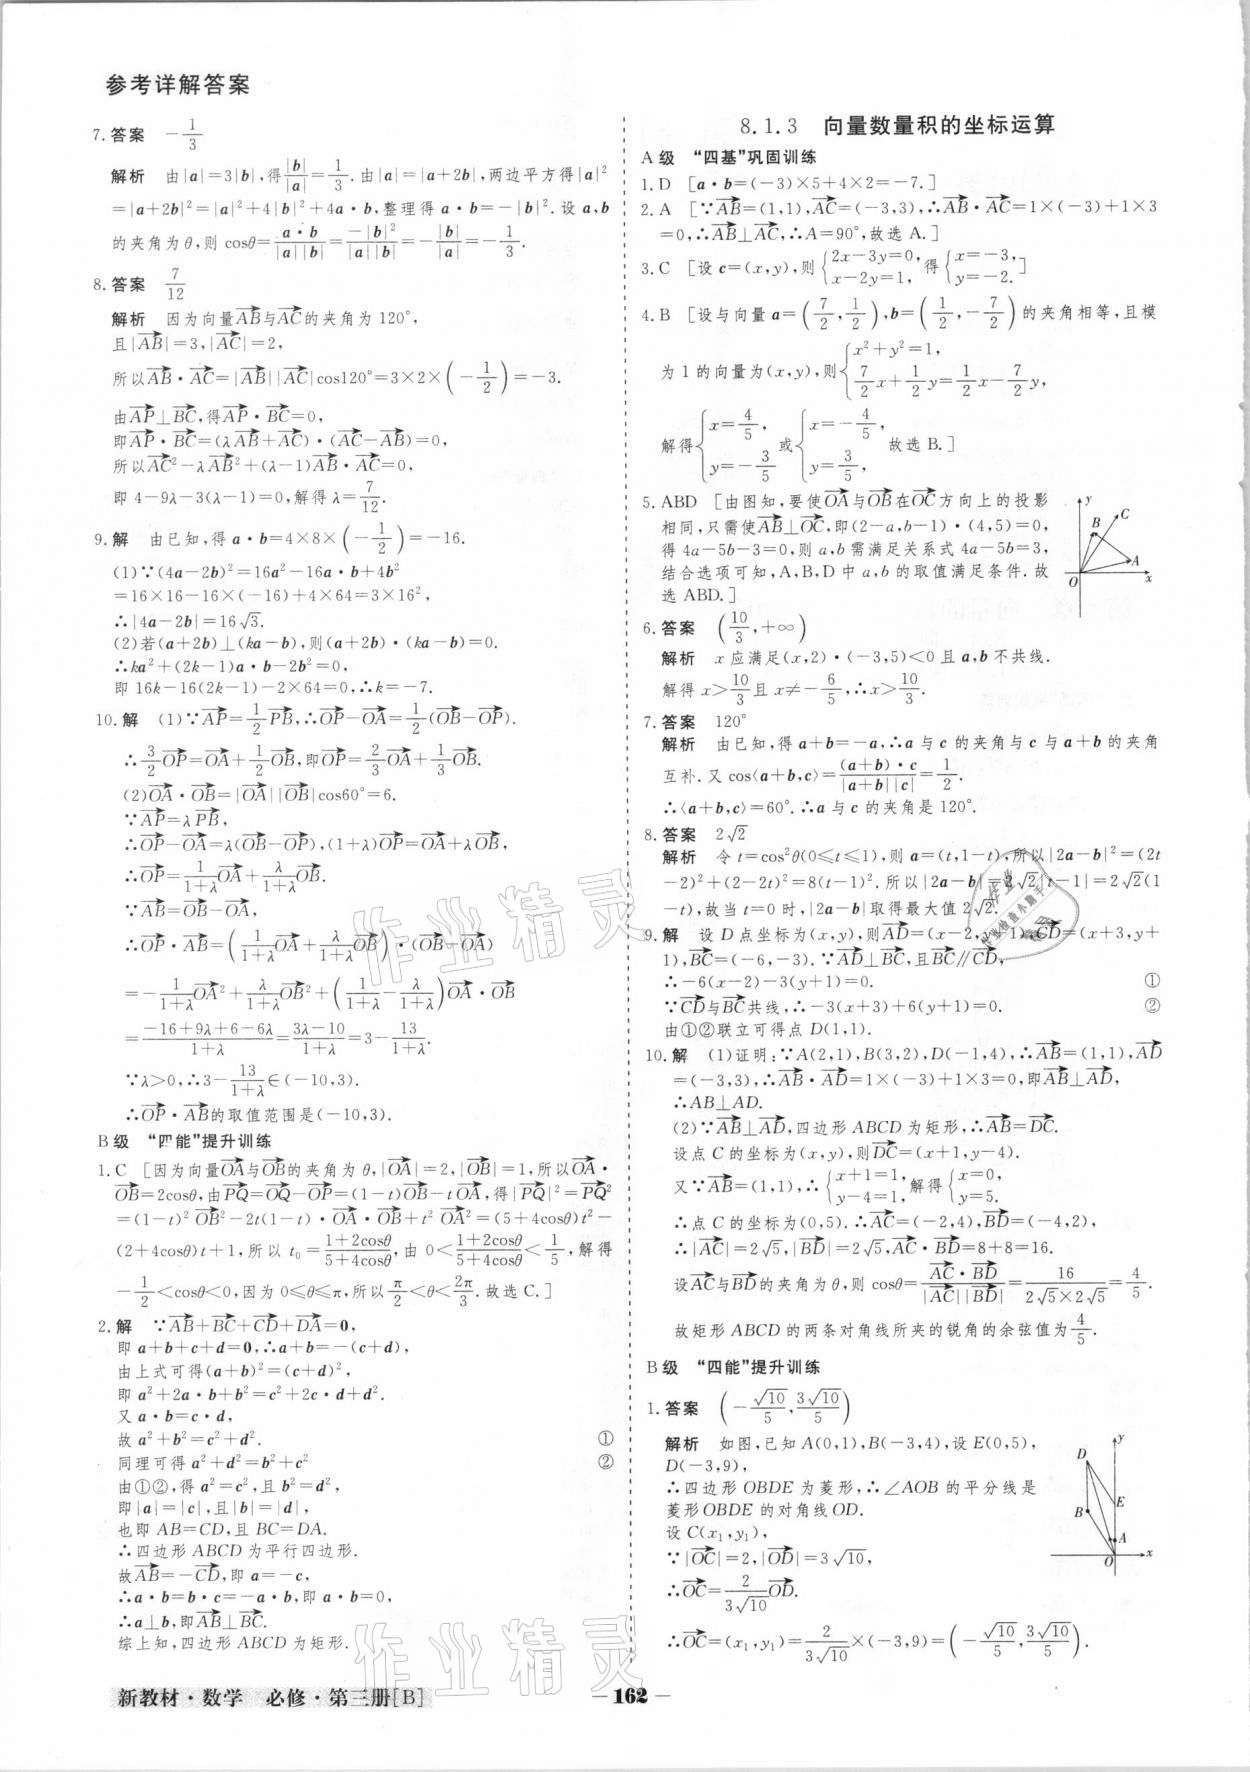 参考详解答案
7.答案 -1/3
解析 由|a|=3|b|,得|b|/|a|=1/3.由|a|=|a+2b|,两边平方得|a|²
=|a+2b|²=|a|²+4|b|²+4a·b,整理得a·b=-|b|².设a,b
的夹角为θ,则cosθ=a·b/|a||b|=-|b|²/|a||b|=-|b|/|a|=-1/3.
8.答案 7/12
解析 因为向量AB→与AC→的夹角为120°,
且|AB→|=3,|AC→|=2,
所以AB→·AC→=|AB→||AC→|cos120°=3×2×(-1/2)=-3.
由AP→⊥BC→,得AP→·BC→=0,
即AP→·BC→=(λAB→+AC→)·(AC→-AB→)=0,
所以AC→²-λAB→²+(λ-1)AB→·AC→=0,
即4-9λ-3(λ-1)=0,解得λ=7/12.
9.解 由已知,得a·b=4×8×(-1/2)=-16.
(1)∵(4a-2b)²=16a²-16a·b+4b²
=16×16-16×(-16)+4×64=3×16²,
∴|4a-2b|=16√3.
(2)若(a+2b)⊥(ka-b),则(a+2b)·(ka-b)=0.
∴ka²+(2k-1)a·b-2b²=0,
即16k-16(2k-1)-2×64=0,∴k=-7.
10.解 (1)∵AP→=1/2PB→,∴OP→-OA→=1/2(OB→-OP→).
∴3/2OP→=OA→+1/2OB→,即OP→=2/3OA→+1/3OB→.
(2)OA→·OB→=|OA→||OB→|cos60°=6.
∵AP→=λPB→,
∴OP→-OA→=λ(OB→-OP→),(1+λ)OP→=OA→+λOB→,
∴OP→=1/(1+λ)OA→+λ/(1+λ)OB→.
∵AB→=OB→-OA→,
∴OP→·AB→=(1/(1+λ)OA→+λ/(1+λ)OB→)·(OB→-OA→)
=-1/(1+λ)OA→²+λ/(1+λ)OB→²+(1/(1+λ)-λ/(1+λ))OA→·OB→
=(-16+9λ+6-6λ)/(1+λ)=(3λ-10)/(1+λ)=3-13/(1+λ).
∵λ>0,∴3-13/(1+λ)∈(-10,3).
∴OP→·AB→的取值范围是(-10,3).
B级 “四能”提升训练
1.C [因为向量OA→与OB→的夹角为θ,|OA→|=2,|OB→|=1,所以OA→·
OB→=2cosθ,由PQ→=OQ→-OP→=(1-t)OB→-tOA→,得|PQ→|²=PQ→²
=(1-t)²OB→²-2t(1-t)·OA→·OB→+t²OA→²=(5+4cosθ)t²-
(2+4cosθ)t+1,所以t₀=(1+2cosθ)/(5+4cosθ),由0<(1+2cosθ)/(5+4cosθ)<1/5,解得
-1/2<cosθ<0,因为0≤θ≤π,所以π/2<θ<2π/3.故选C.]
2.解 ∵AB→+BC→+CD→+DA→=0,
即a+b+c+d=0,∴a+b=-(c+d),
由上式可得(a+b)²=(c+d)²,
即a²+2a·b+b²=c²+2c·d+d².
又a·b=c·d,
故a²+b²=c²+d². ①
同理可得a²+d²=b²+c² ②
由①②,得a²=c²,且b²=d²,
即|a|=|c|,且|b|=|d|,
也即AB=CD,且BC=DA.
∴四边形ABCD为平行四边形.
故AB→=-CD→,即a=-c,
∴a·b=b·c=-a·b,即a·b=0,
∴a⊥b,即AB→⊥BC→.
综上知,四边形ABCD为矩形.
8.1.3 向量数量积的坐标运算
A级 “四基”巩固训练
1.D [a·b=(-3)×5+4×2=-7.]
2.A [∵AB→=(1,1),AC→=(-3,3),∴AB→·AC→=1×(-3)+1×3
=0,∴AB→⊥AC→,∴A=90°,故选A.]
3.C [设c=(x,y),则{2x-3y=0, x-2y=1, 得{x=-3, y=-2.]
4.B [设与向量a=(7/2,1/2),b=(1/2,-7/2)的夹角相等,且模
为1的向量为(x,y),则{x²+y²=1, 7/2x+1/2y=1/2x-7/2y,
解得{x=4/5, y=-3/5 或{x=-4/5, y=3/5. 故选B.]
5.ABD [由图知,要使OA→与OB→在OC→方向上的投影
相同,只需使AB→⊥OC→,即(2-a,b-1)·(4,5)=0,
得4a-5b-3=0,则a,b需满足关系式4a-5b=3,
结合选项可知,A,B,D中a,b的取值满足条件.故
选ABD.]
y
B
C
A
O
x
6.答案 (10/3,+∞)
解析 x应满足(x,2)·(-3,5)<0且a,b不共线.
解得x>10/3且x≠-6/5,∴x>10/3.
7.答案 120°
解析 由已知,得a+b=-a,∴a与c的夹角与c与a+b的夹角
互补.又cos⟨a+b,c⟩=(a+b)·c/|a+b||c|=1/2.
∴⟨a+b,c⟩=60°.∴a与c的夹角是120°.
8.答案 2√2
解析 令t=cos²θ(0≤t≤1),则a=(t,1-t),所以|2a-b|²=(2t
-2)²+(2-2t)²=8(t-1)².所以|2a-b|=2√2|t-1|=2√2(1
-t),故当t=0时,|2a-b|取得最大值2√2.
9.解 设D点坐标为(x,y),则AD→=(x-2,y-1),CD→=(x+3,y+
1),BC→=(-6,-3).∵AD→⊥BC→,且BC→∥CD→,
∴-6(x-2)-3(y+1)=0. ①
∵CD→与BC→共线,∴-3(x+3)+6(y+1)=0. ②
由①②联立可得点D(1,1).
10.解 (1)证明:∵A(2,1),B(3,2),D(-1,4),∴AB→=(1,1),AD→
=(-3,3),∴AB→·AD→=1×(-3)+1×3=0,即AB→⊥AD→,
∴AB⊥AD.
(2)∵AB→⊥AD→,四边形ABCD为矩形,∴AB→=DC→.
设点C的坐标为(x,y),则DC→=(x+1,y-4).
又∵AB→=(1,1),∴{x+1=1, y-4=1, 解得{x=0, y=5.
∴点C的坐标为(0,5).∴AC→=(-2,4),BD→=(-4,2),
∴|AC→|=2√5,|BD→|=2√5,AC→·BD→=8+8=16.
设AC→与BD→的夹角为θ,则cosθ=AC→·BD→/|AC→||BD→|=16/(2√5×2√5)=4/5.
故矩形ABCD的两条对角线所夹的锐角的余弦值为4/5.
B级 “四能”提升训练
1.答案 (-√10/5,3√10/5)
解析 如图,已知A(0,1),B(-3,4),设E(0,5),
D(-3,9),
∴四边形OBDE为菱形,∴∠AOB的平分线是
菱形OBDE的对角线OD.
设C(x₁,y₁),
∵|OC→|=2,|OD→|=3√10,
∴OC→=2/(3√10)OD→.
∴OC→=(x₁,y₁)=2/(3√10)×(-3,9)=(-√10/5,3√10/5).
y
D
E
B
A
O
x
新教材·数学 必修·第三册[B]
- 162 -
作业精灵
作业精灵